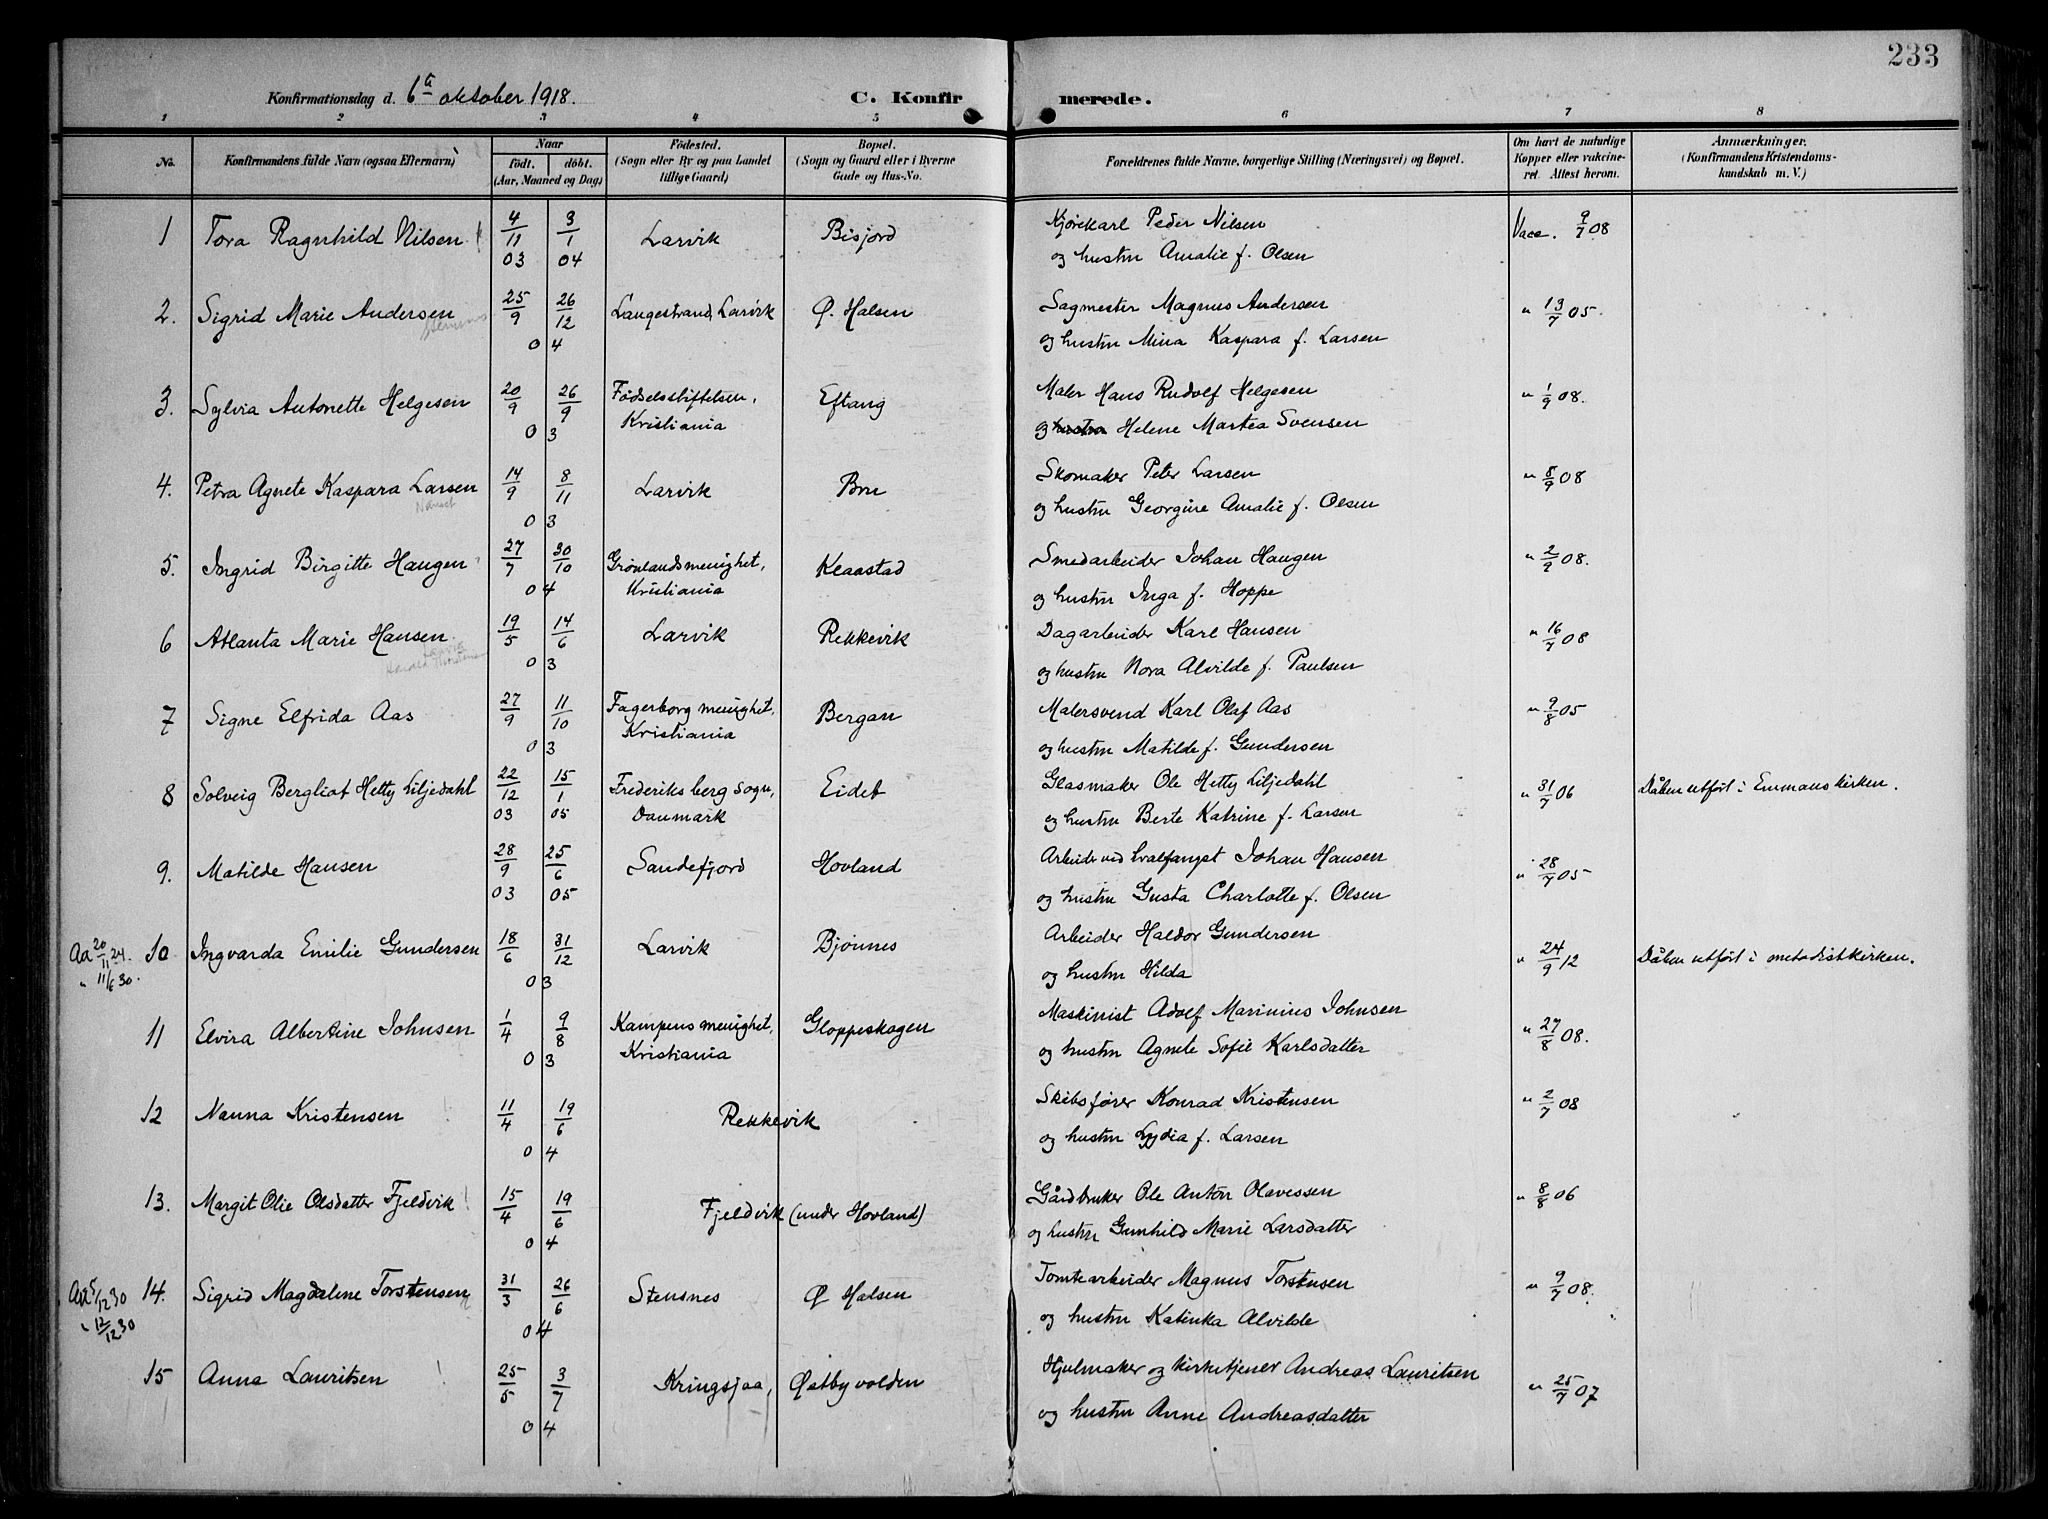 233
Konfirmationsdag d. 6te oktober 1918. C. Konfirmerede.
1 2 3 4 5 6 7 8
No. Konfirmandens fulde Navn (ogsaa Efternavn) Naar født. døbt. (Aar, Maaned og Dag) Fødested. (Sogn eller By og paa Landet tillige Gaard) Bopæl. (Sogn og Gaard eller i Byerne Gade og Hus-No. Forældrenes fulde Navne, borgerlige Stilling (Næringsvei) og Bopæl. Om havt de naturlige Kopper eller vakcineret. Attest herom. Anmærkninger. (Konfirmandens Kristendomskundskab m. V.)
1 Tora Ragnhild Nilsen 4/11 03 3/1 04 Larvik Bisjord Kjørekarl Peder Nilsen Vacc. 9/7 08
og hustru Amalie f. Olsen
2. Sigrid Marie Andersen 25/9 26/12 04 Langestrand, Larvik Ø. Halsen Sagmester Magnus Andersen " 13/7 05.
og hustru Mina Kaspara f. Larsen
3. Sylvia Antonette Helgesen 20/9 26/9 03 Fødselsstiftelsen, Kristiania Eftang Maler Hans Rudolf Helgesen " 1/9 08.
og hustru Helene Martea Svensen
4. Petra Agnete Kaspara Larsen 14/9 8/11 03 Larvik Bru Skomaker Peter Larsen " 8/9 08
og hustru Georgine Amalie f. Olsen
5. Ingrid Birgitte Haugen 27/7 30/10 04 Grønlandsmenighet, Kristiania Klaastad Smedarbeider Johan Haugen " 2/9 08.
og hustru Inga f. Hoppe
6 Atlanta Marie Hansen 19/5 14/6 03 Larvik Rekkevik Dagarbeider Karl Hansen " 16/7 08
og hustru Nora Alvilde f. Paulsen
7 Signe Elfrida Aas 27/9 11/10 03 Fagerborg menighet, Kristiania Bergan Malersvend Karl Olaf Aas " 9/8 05
og hustru Matilde f. Gundersen
8 Solveig Bergliot Hetty Liljedahl 22/12 03 15/1 05 Frederiksberg sogn, Danmark Eidet Glasmaker Ole Hetty Liljedahl " 31/7 06 Dåben utført i Emmauskirken.
og hustru Berte Katrine f. Larsen
9. Matilde Hansen 28/9 03 25/6 05 Sandefjord Hovland Arbeider ved hvalfangst Johan Hansen " 28/7 05
og hustru Gusta Charlotte f. Olsen
Aa 20/11 24. " 11/6 30. 10 Ingvarda Emilie Gundersen 18/6 31/12 03 Larvik Bjønnes Arbeider Haldor Gundersen " 24/9 12 Dåben utført i metodistkirken.
og hustru Hilda
11 Elvira Albertine Johnsen 1/4 9/8 03 Kampens menighet, Kristiania Gloppeskogen Maskinist Adolf Marinius Johnsen " 27/8 08.
og hustru Agnete Sofie Karlsdatter
12 Nanna Kristensen 11/4 19/6 04 Rekkevik Skibsfører Konrad Kristensen " 2/7 08
og hustru Lydia f. Larsen
13. Margit Olie Olsdatter Fjeldvik 15/4 19/6 04 Fjeldvik (under Hovland) Gårdbruker Ole Anton Olavessen " 8/8 06
og hustru Gunhild Marie Larsdatter
Aa 5/12 30 " 12/12 30 14. Sigrid Magdalene Torstensen 31/3 26/6 04 Stensnes Ø Halsen Tomtearbeider Magnus Torstensen " 9/7 08.
og hustru Katinka Alvilde
15 Anna Lauritsen 25/5 3/7 04 Kringsjaa, Østbyvolden Hjulmaker og kirketjener Andreas Lauritsen " 25/7 07
og hustru Anne Andreasdatter